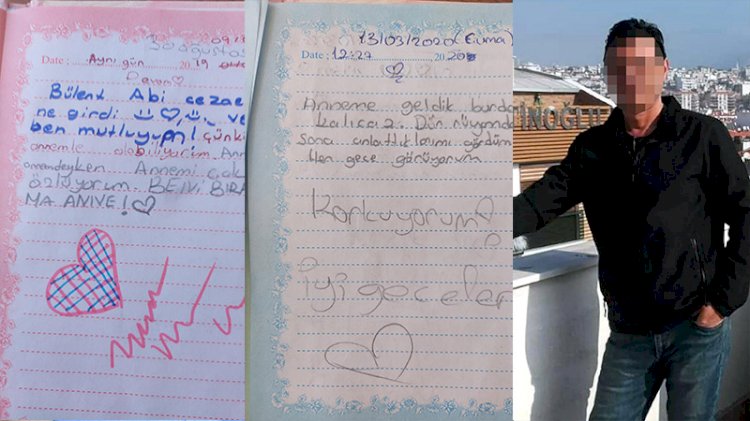 30 ağustos
Date : Aynı gün 20 19
Devam♡
Bülent Abi cezae
ne girdi ve
ben mutluyum! Çünkü
annemle olabiliyorum
Annemi çok
özlüyorum. BENİ BIRA
MA ANNE!♡
13/03/2020 (Cuma)
Date : 12:27 20
Anneme geldik burda
kalıcaz. Dün rüyamda
sana anlattıklarımı gördüm
Her gece görüyorum
Korkuyorum
iyi geceler
INOĞLU